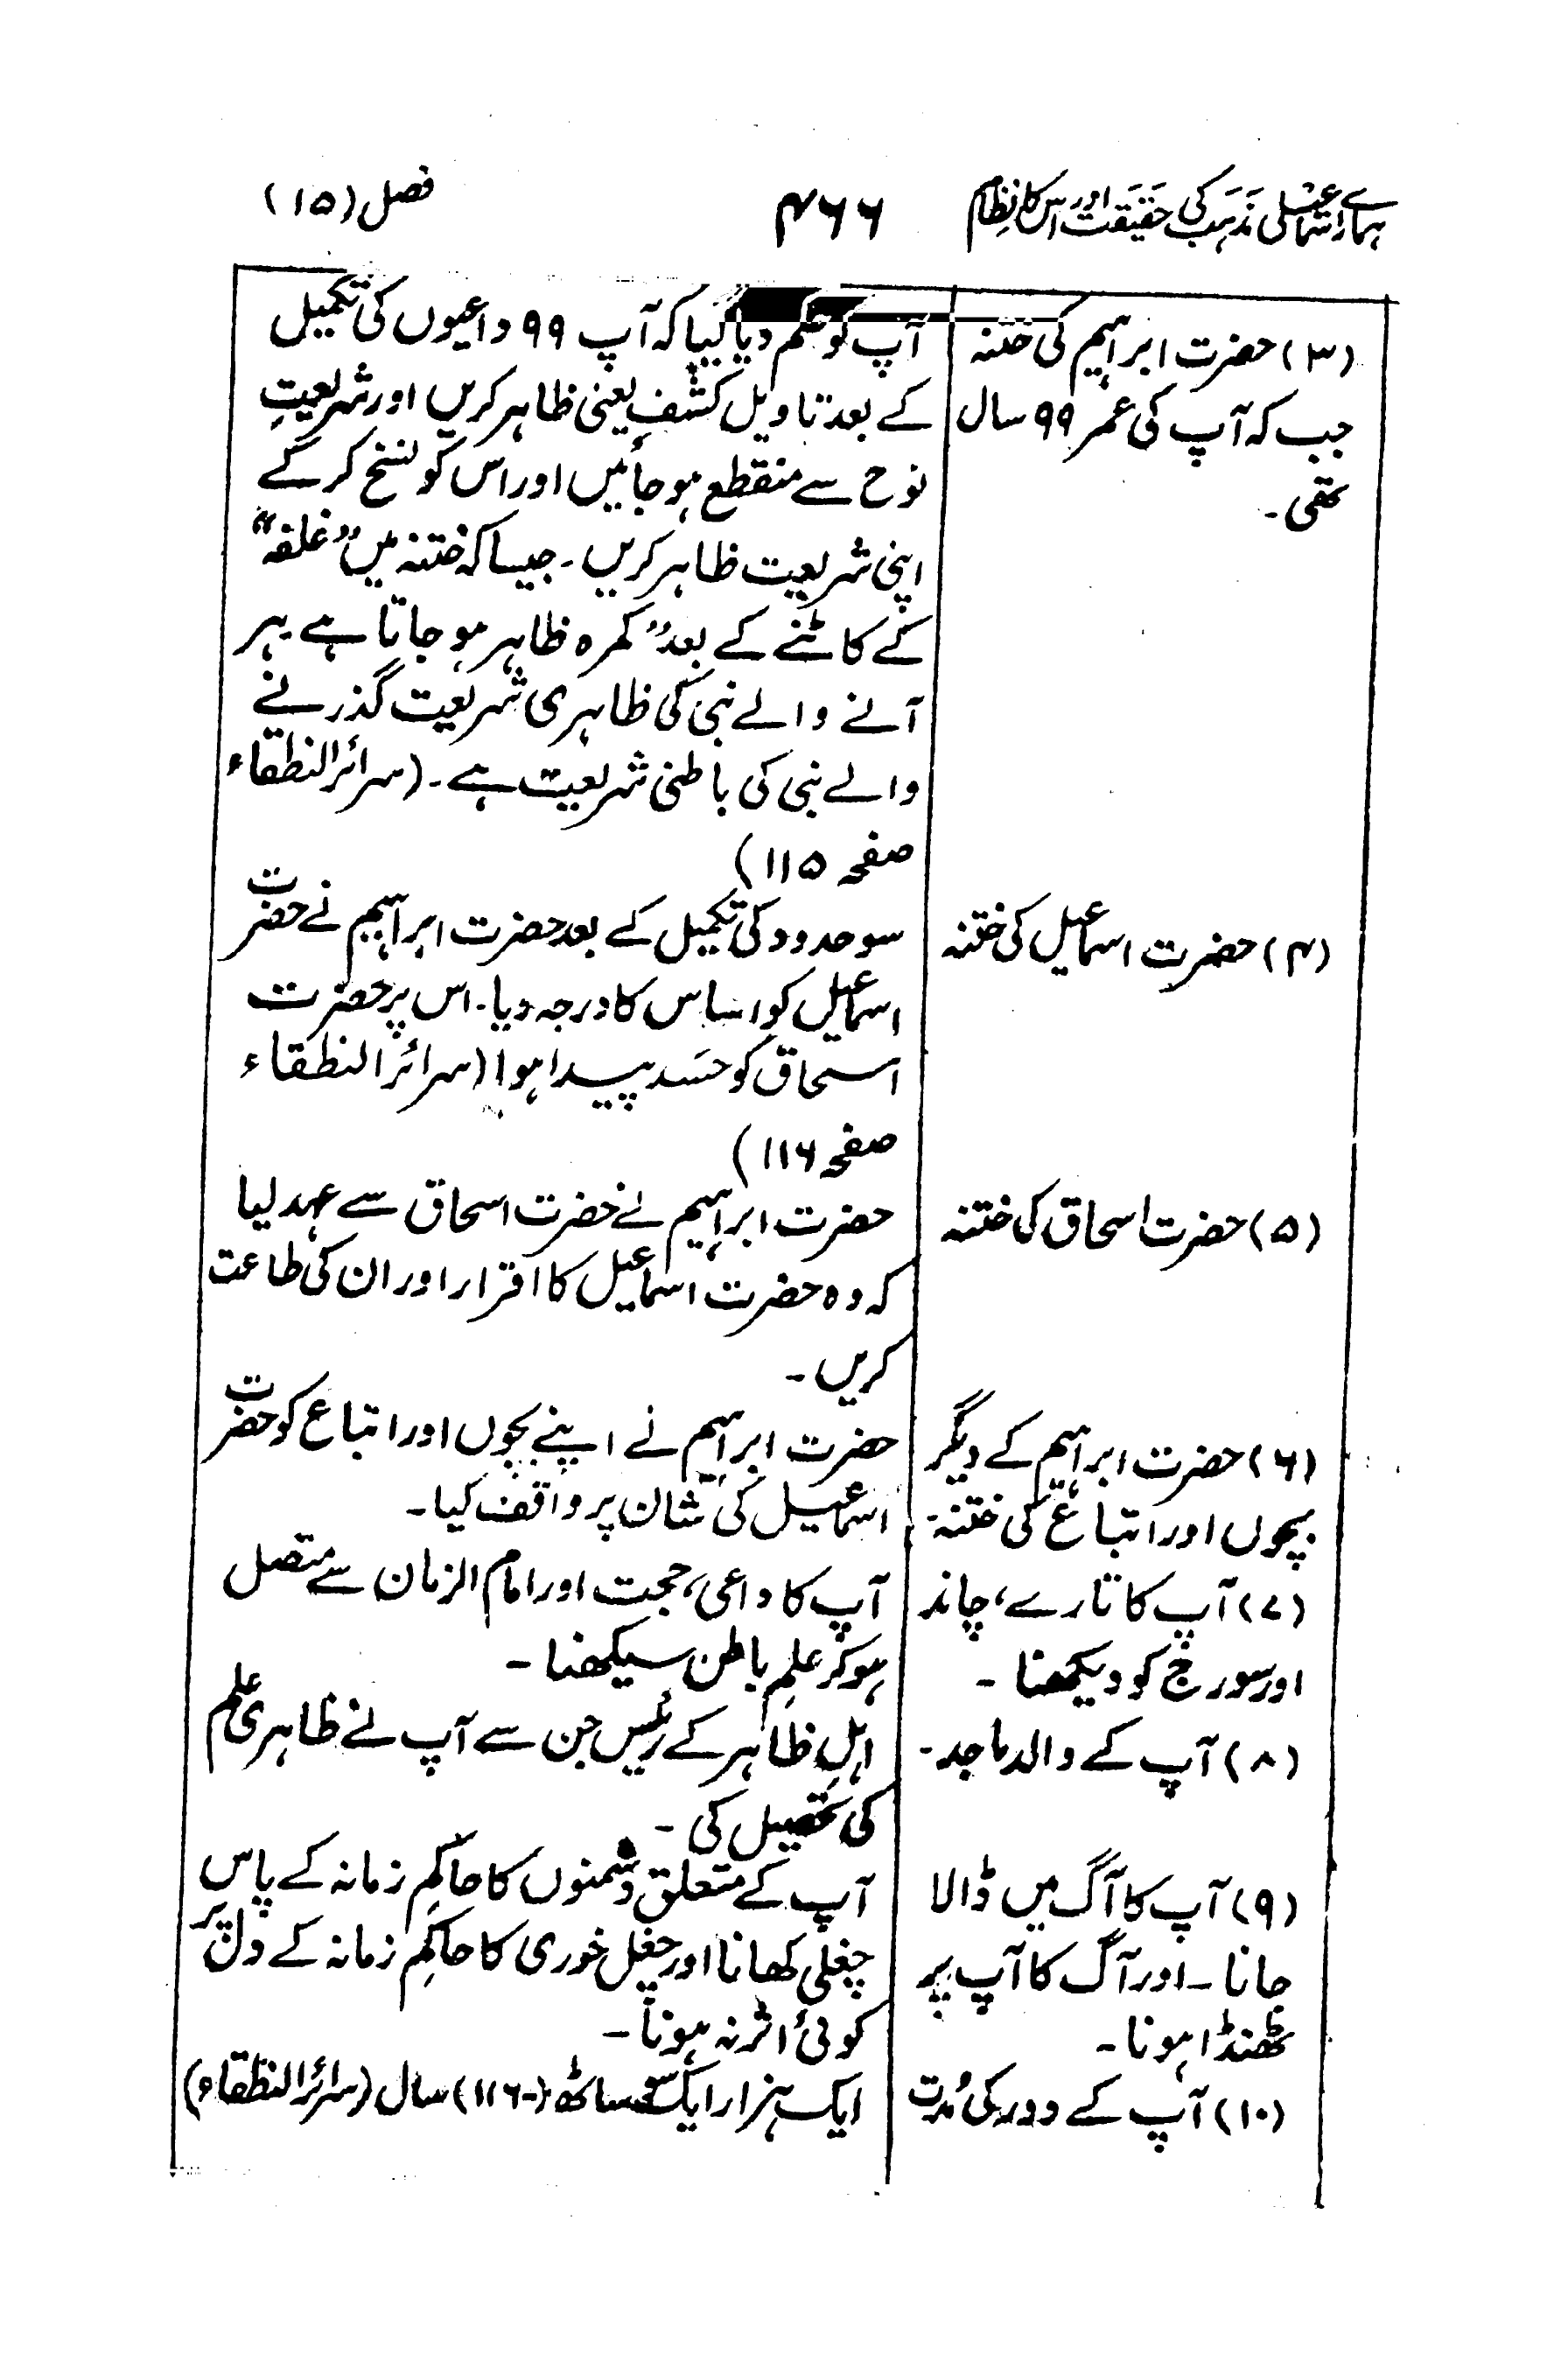 ہمارے اسماعیلی مذہب کی حقیقت اور اس کا نظام
۴۶۶
فصل (۱۵)
(۳) حضرت ابراہیم کی ختنہ
جب کہ آپ کی عمر ۹۹ سال
تھی۔
آپ کو حکم دیا گیا کہ آپ ۹۹ داعیوں کی تکمیل
کے بعد تاویل کشف یعنی ظاہر کریں اور شریعتِ
نوح سے منقطع ہو جائیں اور اس کو نسخ کر کے
اپنی شریعت ظاہر کریں۔ جیسا کہ ختنہ میں "غلفہ"
کے کاٹنے کے بعد "کمرہ ظاہر ہو جاتا ہے۔ ہر
آنے والے نبی کی ظاہری شریعت گذرنے
والے نبی کی باطنی شریعت ہے۔ (سرائر النطقاء
صفحہ ۱۱۵)
(۴) حضرت اسماعیل کی ختنہ
سو حدود کی تکمیل کے بعد حضرت ابراہیم نے حضرت
اسماعیل کو اساس کا درجہ دیا۔ اس پر حضرت
اسحاق کو حَسَد پیدا ہوا (سرائر النطقاء
صفحہ ۱۱۶)
(۵) حضرت اسحاق کی ختنہ
حضرت ابراہیم نے حضرت اسحاق سے عہد لیا
کہ وہ حضرت اسماعیل کا اقرار اور ان کی طاعت
کریں۔
(۶) حضرت ابراہیم کے دیگر
بچوں اور اتباع کی ختنہ۔
حضرت ابراہیم نے اپنے بچوں اور اتباع کو حضرت
اسماعیل کی شان پر واقف کیا۔
(۷) آپ کا تارے، چاند
اور سورج کو دیکھنا۔
آپ کا داعی، حجت اور امام الزمان سے متصل
ہو کر علمِ باطن سیکھنا۔
(۸) آپ کے والد ماجد۔
اہلِ ظاہر کے رئیس جن سے آپ نے ظاہری علم
کی تحصیل کی۔
(۹) آپ کا آگ میں ڈالا
جانا۔ اور آگ کا آپ پر
ٹھنڈا ہونا۔
آپ کے متعلق دشمنوں کا حاکمِ زمانہ کے پاس
چغلی کھانا اور چغل خوری کا حاکمِ زمانہ کے دل پر
کوئی اثر نہ ہونا۔
(۱۰) آپ کے دور کی مُدت
ایک ہزار ایک سو ساٹھ (۱۱۶۰) سال (سرائر النطقاء)